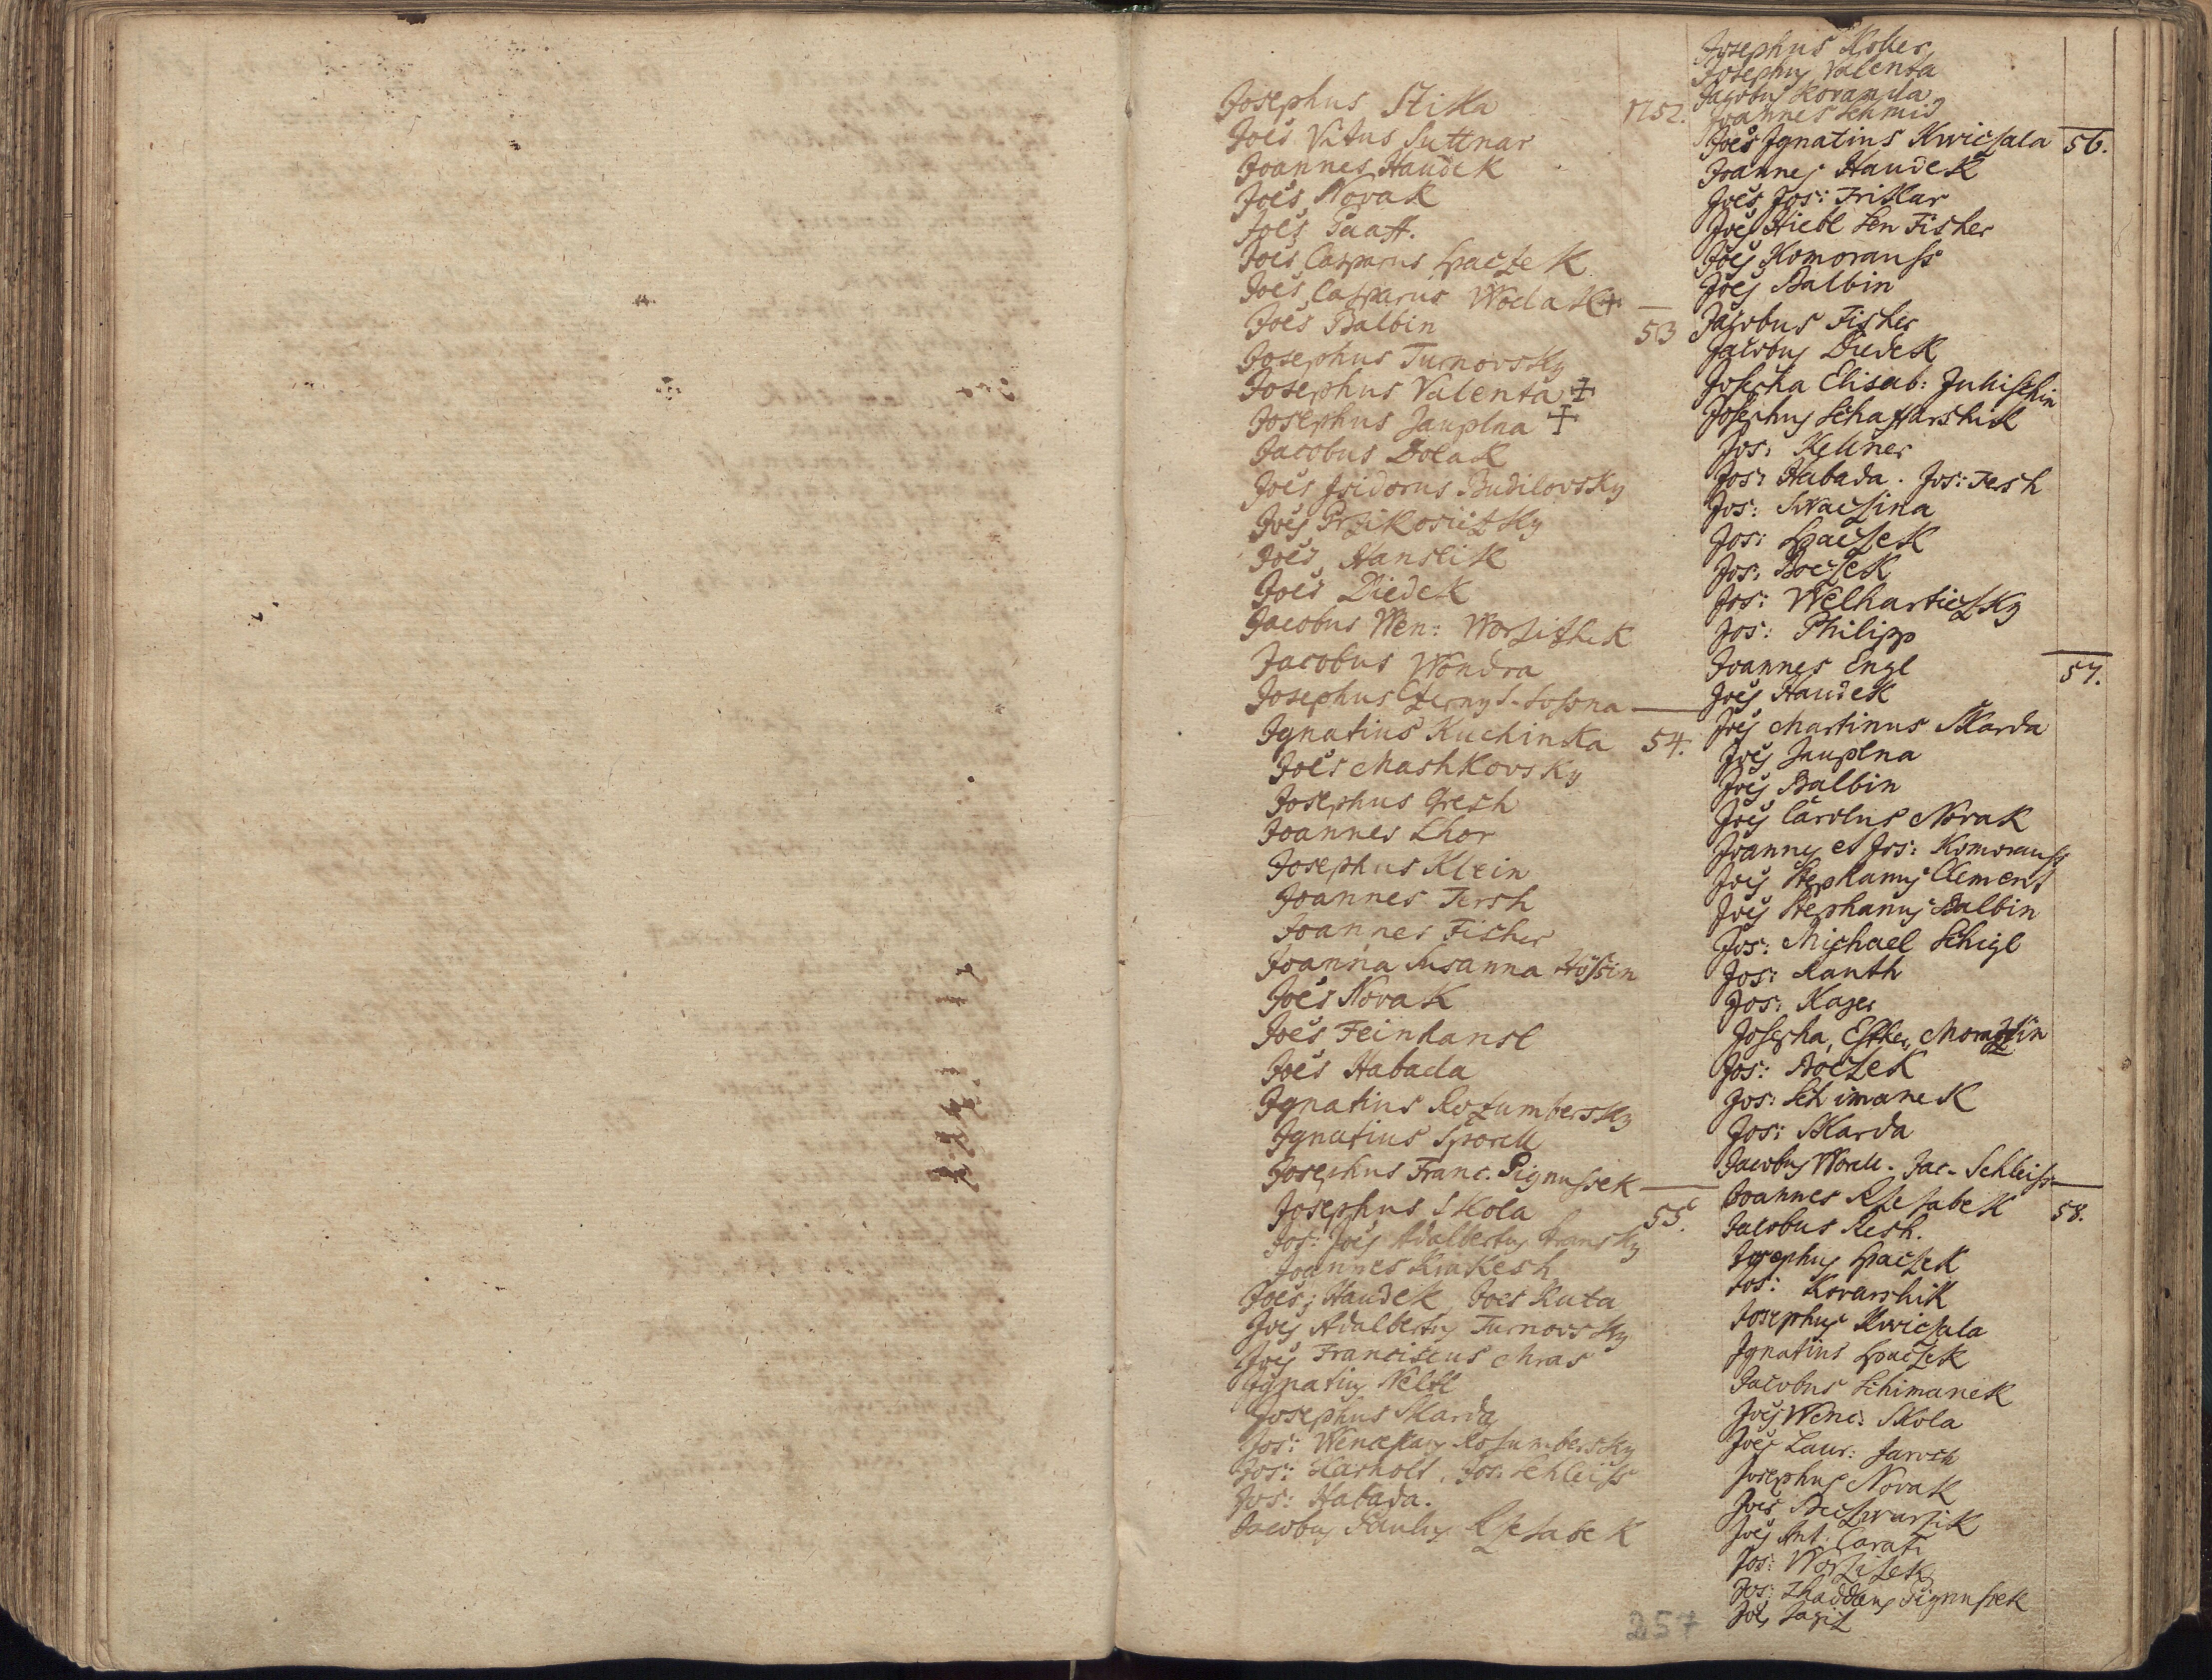 Josephus Stika 1752.
Joes Vitus Suttnar
Joannes Haudek
Joes Novak
Joes Taaff.
Joes Casparus Hpaczek
Joes Casparus Wodak +
Joes Balbin 53
Josephus Turnovsky
Josephus Valenta +
Josephus Zauplna +
Jacobus Dolak
Joes Isidorus Budilovsky
Joes
Joes Hanslik
Joes Diedek
Jacobus Wen:
Jacobus Wondra
Josephus
Ignatius Kuchinka 54.
Joes Mashkovsky
Josephus
Joannes Lhor
Josephus Klein
Joannes Tersh
Joannes Fisher
Joanna Susanna
Joes Novak
Joes Feinhansl
Joes Habada
Ignatius Rozumbersky
Ignatius
Josephus Franc. Pignussek
Josephus Skola 55.
Jos: Joes Adalbertus
Joannes
Joes Haudek Joes Kuta
Joes Adalbertus Turnovsky
Joes Franciscus Mras
Ignatius
Josephus Skarda
Jos: Wenceslaus Rosumbersky
Jos: Jos: Schleiss
Jos: Habada.
Jacobus Paulus Rzezabek
Josephus Koller
Josephus Valenta
Jacobus Koranda
Joannes Schmid
Joes Ignatius Kwiczala 56.
Joannes Haudek
Joes Jos:
Joes Hiebl Sen Fisher
Joes Komorauss
Joes Balbin
Jacobus Fisher
Jacobus Diedek
Josepha Elisab:
Josephus Schaffarshik
Jos: Kellner
Jos: Habada. Jos: Tersh
Jos: Swaczina
Jos: Hpaczek
Jos: Boczek
Jos: Welharticzky
Jos: Philipp
Joannes Engl 57.
Joes Haudek
Joes Martinus Skarda
Joes Zauplna
Joes Balbin
Joes Carolus Novak
Joannes et Jos: Komorauss
Joes Stephanus Clement
Joes Stephanus Balbin
Jos: Michael Schigl
Jos: Ranth
Jos: Kayer
Josepha, Esther,
Jos: Boczek
Jos: Schimanek
Jos: Skarda
Jacobus Worell. Jac. Schleiss
Joannes Rzezabek 58.
Jacobus Resh.
Josephus Hpaczek
Jos: Kovarshik
Josephus Kwiczala
Ignatius Hpaczek
Jacobus Schimanek
Joes Wenc: Skola
Joes Laur: Jarosh
Josephus Novak
Joes
Joes Ant: Carati
Jos:
Jos: Thaddeus Pignussek
Joes
257